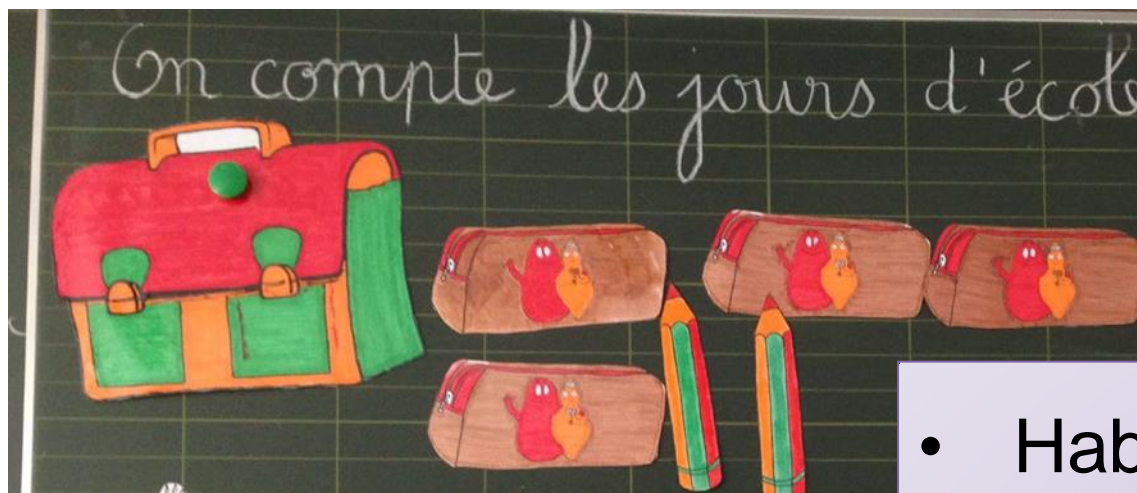 On compte les jours d'école
• Hab